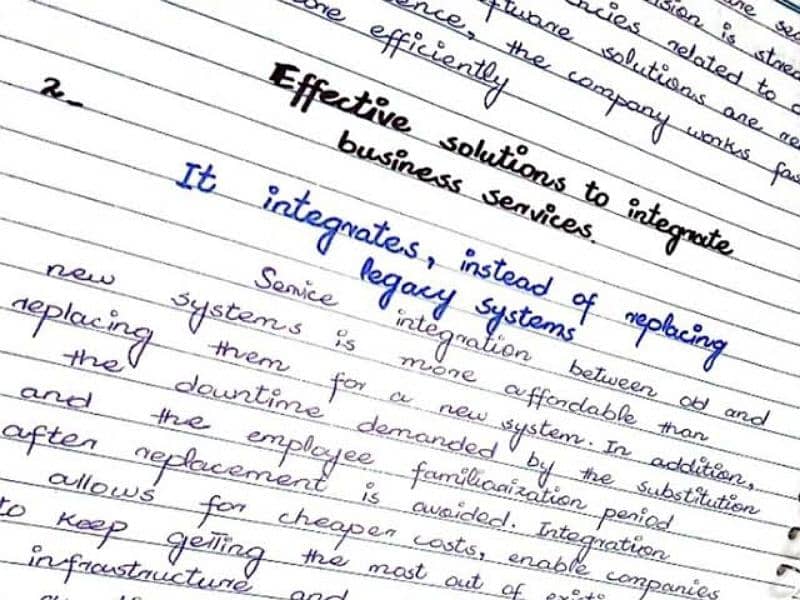 sion is strea
ncies related to
ftware solutions are re
ence, the company works fas
more efficiently
2_
Effective solutions to integrate
business services.
It integrates, instead of replacing
legacy systems
Service integration between old and
new systems is more affordable than
replacing them for a new system. In addition,
the downtime demanded by the substitution
and the employee familiarization period
after replacement is avoided. Integration
allows for cheaper costs, enable companies
to keep getting the most out of existi
infraustructure and